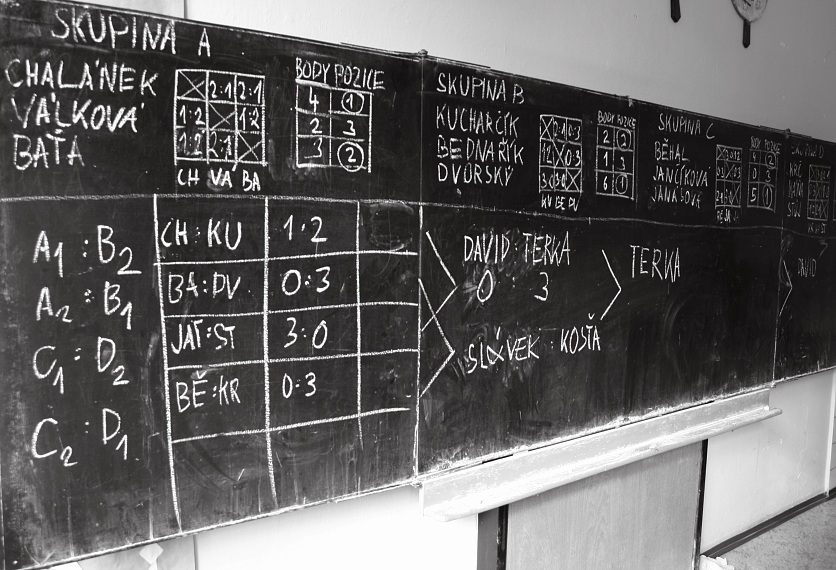 SKUPINA A
CHALÁNEK
VÁLKOVÁ
BAŤA
2:1 2:1
1:2 1:2
1:2 2:1
CH VA BA
BODY POZICE
4 1
2 3
3 2
SKUPINA B
KUCHARČÍK
BEDNAŘÍK
DVORSKÝ
2:1 0:3
1:2 0:3
3:0 3:0
KU BE DV
BODY POZICE
2 2
1 3
6 1
SKUPINA C
BĚHAL
JANČÍKOVÁ
JANÁSOVÉ
BODY POZICE
4 2
0 3
5 1
A1 : B2
A2 : B1
C1 : D2
C2 : D1
CH : KU 1:2
BA : DV 0:3
JAŤ : ST 3:0
BĚ : KR 0:3
DAVID : TERKA
0 : 3
SLÁVEK : KOSŤA
TERKA
DAVID